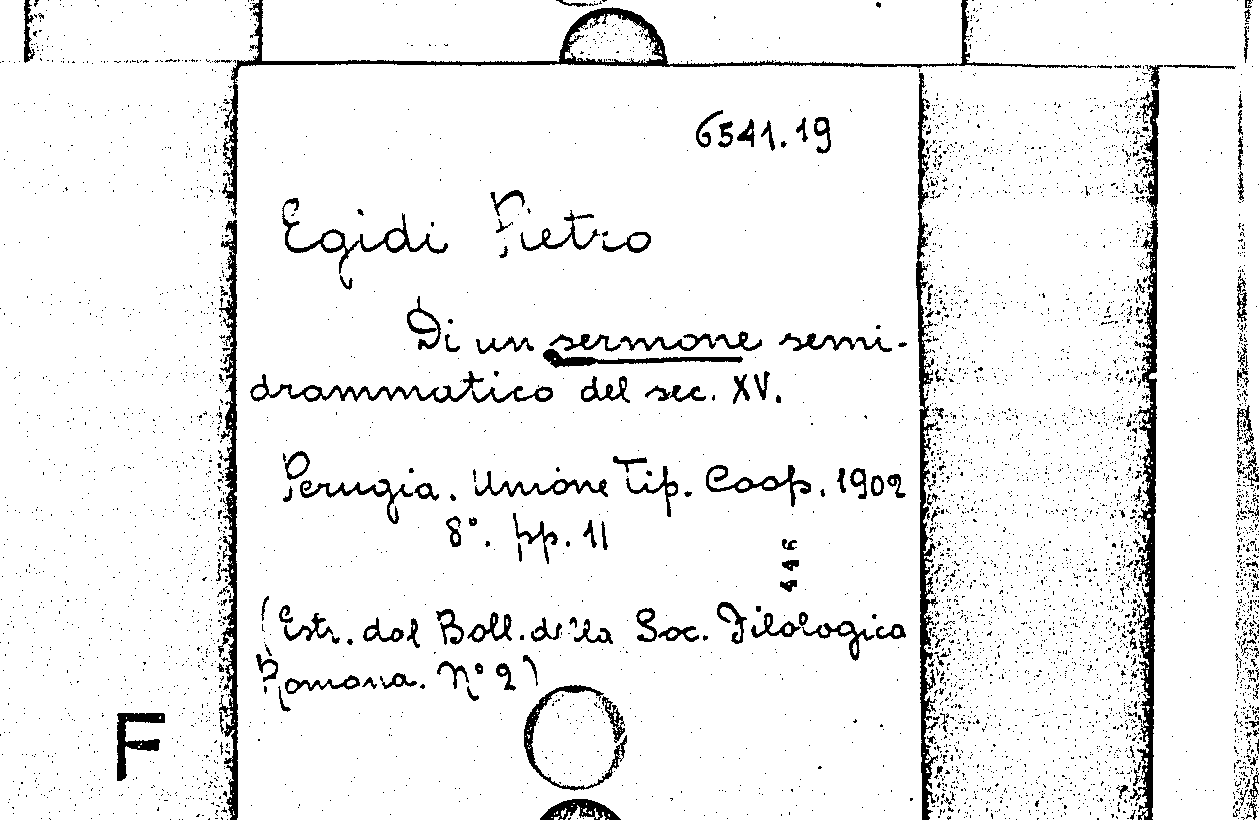 6541.19
Egidi Pietro
Di un sermone semi-
drammatico del sec. XV.
Perugia. Unione Tip. Coop. 1902
8°. pp. 11
446
(Estr. dal Boll. della Soc. Filologica
Romana. N° 2)
F